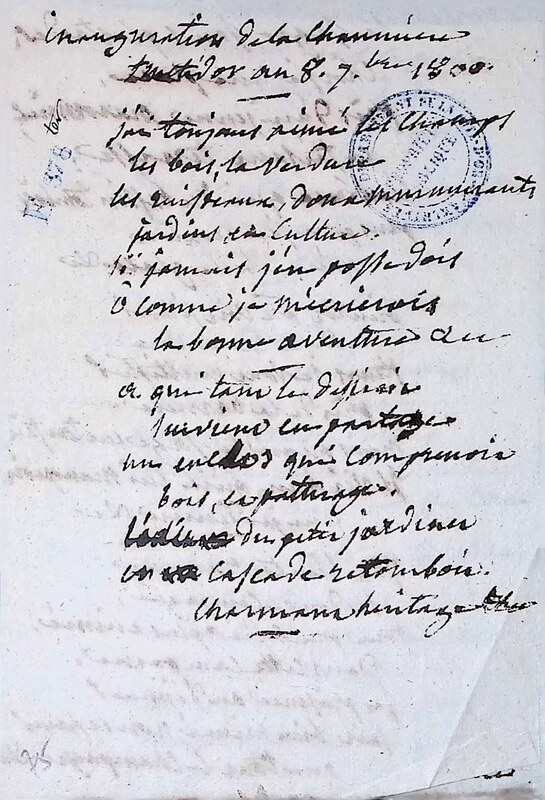 inauguration de la Chaumiere
an 8. 7.bre 1800.
j'ai toujours aimé les Champs
les bois, la verdure
les ruisseaux, doux murmurants
jardins, en Culture.
si jamais j'en possedois
ô comme je m'ecrierois
la bonne aventure &c
a qui tant le desiroit
survient en partage
un enclos qui comprenoit
bois, et patturage.
du petit jardinet
en cascade retomboit
Charmant heritage
E 378 ter
25